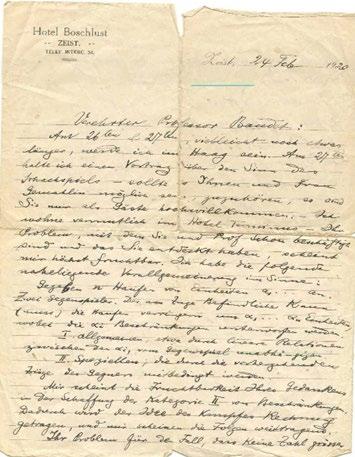 Hotel Boschlust
ZEIST.
Zeist, 24 Feb 1920
Verehrter Professor Baudet:
Am 26ten & 27ten, vielleicht noch etwas
länger, werde ich im Haag sein. Am 27ten
halte ich einen Vortrag über den Sinn des
Schachspiels – sollte es Ihnen und Frau
Gemahlin möglich sein, zuzuhören, so sind
Sie mir als Gäste hochwillkommen. Ich
wohne vermutlich im Hotel Terminus. Ihr
Problem, mit dem Sie und Prof Schouh beschäftigt
sind und das Sie entdeckt haben, scheint
mir höchst fruchtbar. Ich habe die folgende
naheliegende Verallgemeinerung im Sinne:
Gegeben n Haufen von Einheiten a₁ .. an.
Zwei Gegenspieler. Der am Zuge Befindliche kann
(muss) die Haufen verringern um α₁, .. αn Einheiten
wobei die αi Beschränkungen unterworfen werden
I. allgemeinen etwa durch lineare Relationen
zwischen den αi, vom Gegenspiel unabhängigen
II. Speziellen, die durch die vorhergehenden
Züge des Gegners mitbedingt werden.
Mir scheint die Fruchtbarkeit Ihres Gedankens
in der Schaffung der Kategorie II von Beschränkungen.
Dadurch wird der Idee des Kampfes Rechnung
getragen, und mir scheinen die Folgen weittragend.
Ihr Problem für den Fall, dass keine Zahl grösser